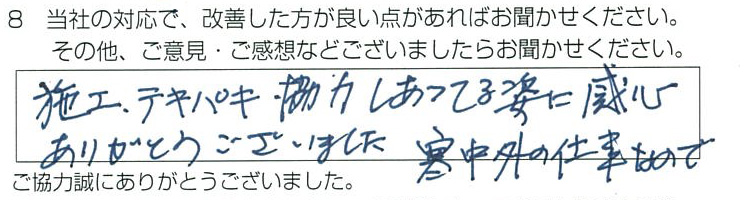 8 当社の対応で、改善した方が良い点があればお聞かせください。
その他、ご意見・ご感想などございましたらお聞かせください。
施工、テキパキ・協力しあってる姿に感心
ありがとうございました 寒中外の仕事なので
ご協力誠にありがとうございました。